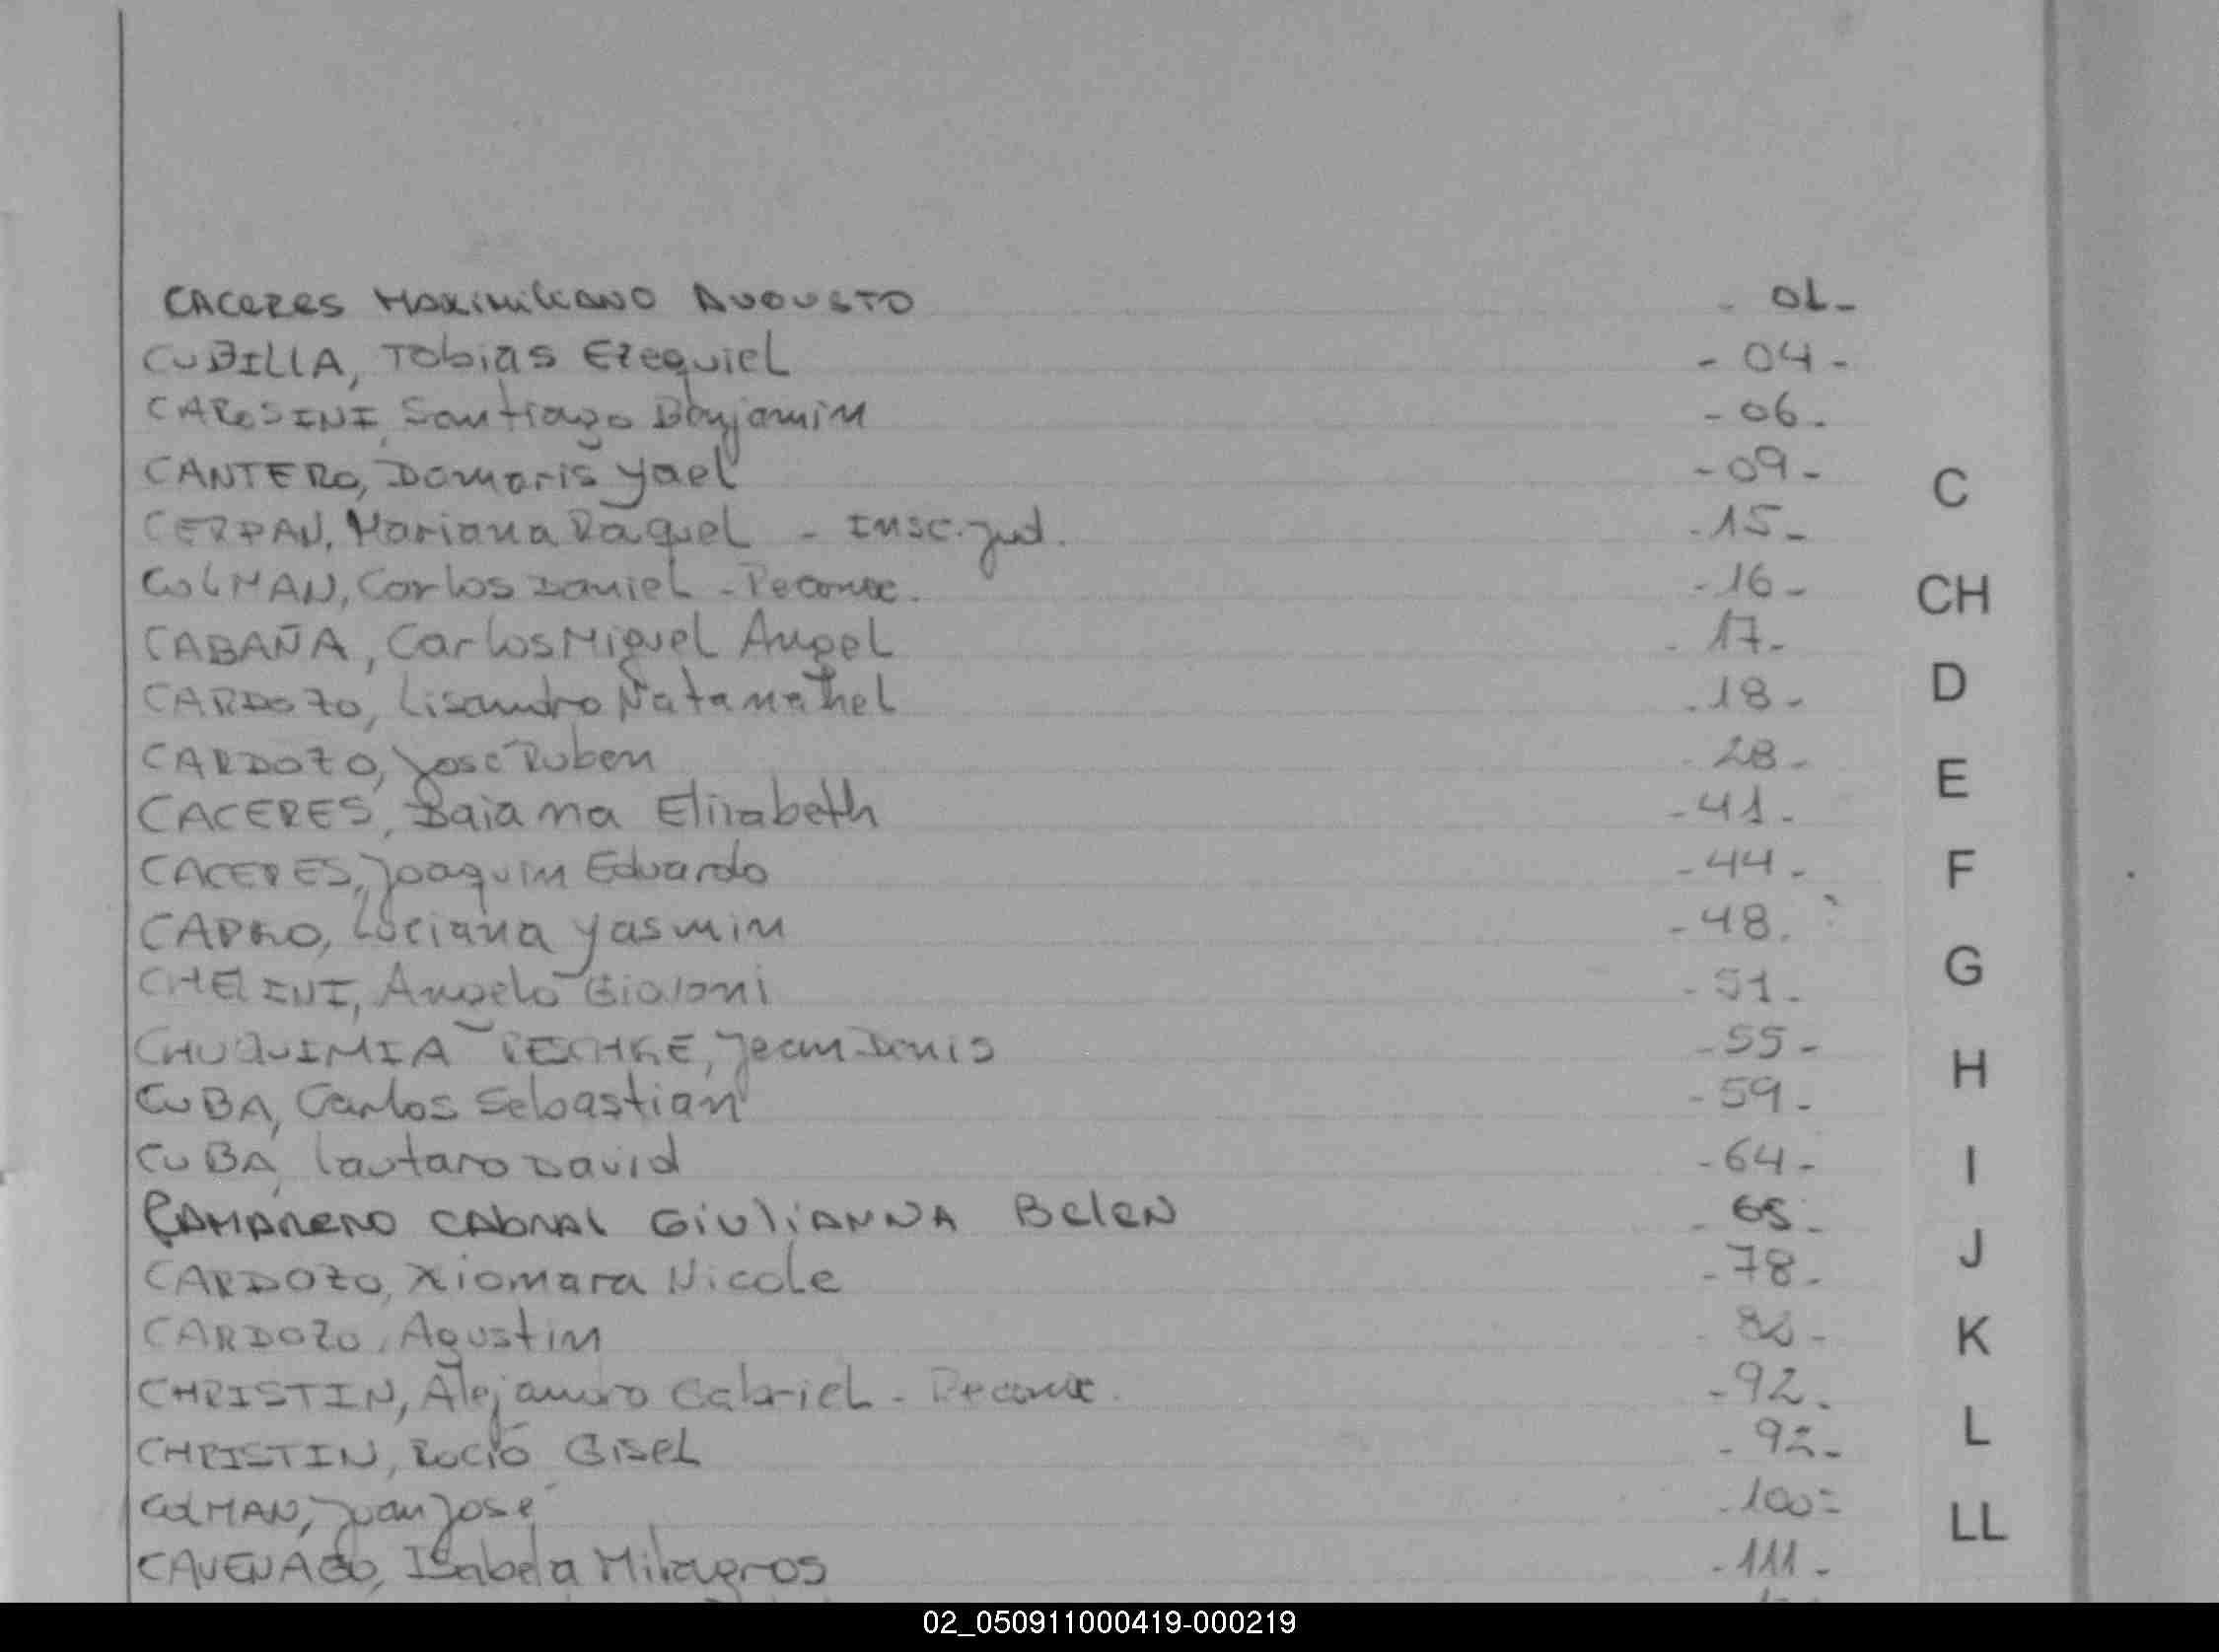 CACERES Maximiliano AUGUSTO - 01 -
CUBILLA, Tobias Ezequiel - 04 -
CAROSINI, Santiago Benjamin - 06 -
CANTERO, Damaris Yael - 09 - C
Mariana Raquel - Insc. jud. - 15 -
COLMAN, Carlos Daniel - Reconoc. - 16 - CH
CABAÑA, Carlos Miguel Angel - 17 -
CARDOZO, Lisandro Natanahel - 18 - D
CARDOZO, José Ruben - 28 - E
CACERES, Baiana Elizabeth - 41 -
CACERES, Joaquin Eduardo - 44 - F
Luciana Yasmin - 48 -
CHELINI, Angelo Giovoni - 51 - G
CHUQUIMIA Jean Denis - 55 - H
CUBA, Carlos Sebastian - 59 -
CUBA, Lautaro David - 64 - I
CAMARERO CABRAL GIULIANNA BELEN - 65 - J
CARDOZO, Xiomara Nicole - 78 -
CARDOZO, Agustin K
CHRISTIN, Alejandro Gabriel - Reconoc. - 92 -
CHRISTIN, Rocío Gisel - 92 - L
COLMAN, Juan José - 100 - LL
CAVENAGO, Isabela Milagros - 111 -
02_050911000419-000219